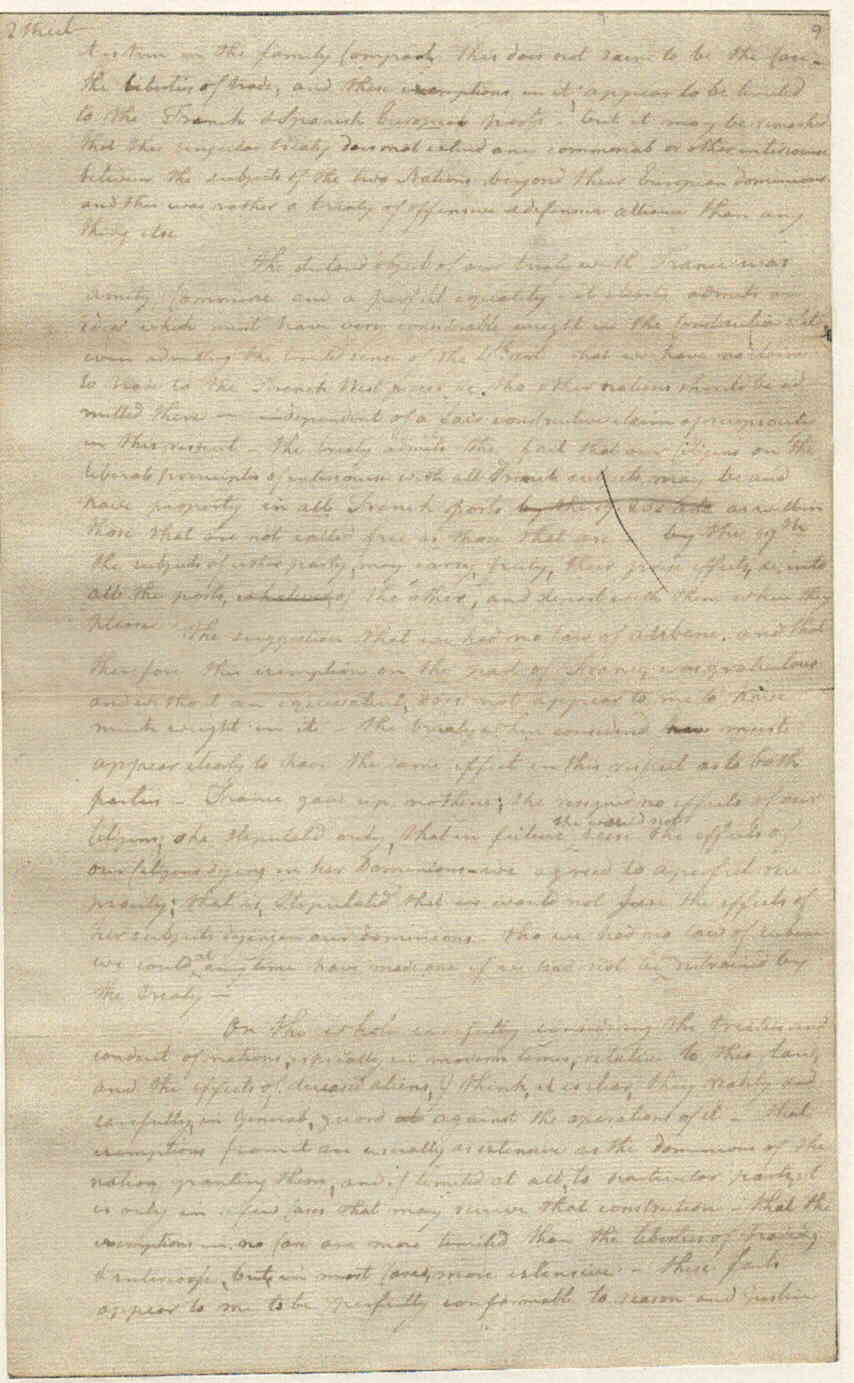 2 Sheet 9
in the family Compact, this does not seem to be the Case
the liberties of trade, and these exemptions in it appear to be limited
to the French & Spanish European ports - but it may be remarked
that this singular treaty does not extend any commercial or other intercourse
between the subjects of the two Nations beyond their European dominions
and this was rather a treaty of offensive & defensive alliance than any
thing else
The declared object of our treaty with France was
amity Commerce and a perfect equality - it clearly admits an
idea which must have very considerable weight in the Construction
even admitting the limited sense of the that we have no
to trade to the French West places &c. tho other nations should be ad
mitted there independent of a fair constructive claim of reciprocity
in this respect - the treaty admits the fact that our Citizens on the
liberal principles of intercourse with all French subjects, may be and
have property in all French ports by the as well in
those that are not called free as those that are by the
the subjects of either party, may carry, freely, their goods effects, &c. into
all the ports, whatever of the other, and depart with them when they
please The suggestion that we had no law of aubaine, and that
therefore this exemption on the part of France, was gratuitous
and without an equivalent, does not appear to me to have
much weight in it - the treaty when considered must
appear clearly to have the same effect in this respect as to both
parties - France gave up nothing; she resigned no effects of our
Citizens; she stipulated only, that in future she would not seize the effects of
our Citizens dying in her Dominions - we agreed to a perfect reci
procity; that is, stipulated that we would not seize the effects of
her subjects dying in our dominions - tho we had no law of aubaine
we could at any time have made one if we had not been restrained by
the Treaty -
On the whole carefully considering the treaties and
conduct of nations, especially in modern times, relative to this law,
and the effects of deceased aliens, I think, it is clear, they readily and
carefully, in General, guard against the operations of it - that
exemptions from it are usually as extensive as the dominions of the
nation granting them, and if limited at all, to particular parts, it
is only in a few cases that may receive that construction - that the
exemptions in no case are more limited than the liberties of trading
& intercourse, but, in most Cases, more extensive - these facts
appear to me to be perfectly conformable to reason and Justice